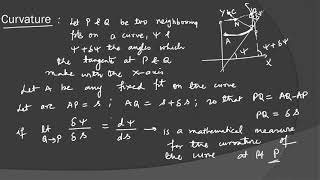 Curvature : Let P & Q be two neighbouring
pts on a curve, ψ &
ψ+δψ the angles which
the tangents at P & Q
make with the x-axis
Let A be any fixed pt on the curve
Let arc AP = s ; AQ = s+δs ; so that PQ = AQ-AP
PQ = δs
if lt Q→P δψ/δs = dψ/ds → is a mathematical measure
for the curvature of
the curve at pt P
Y
C
N
X
ψ+δψ